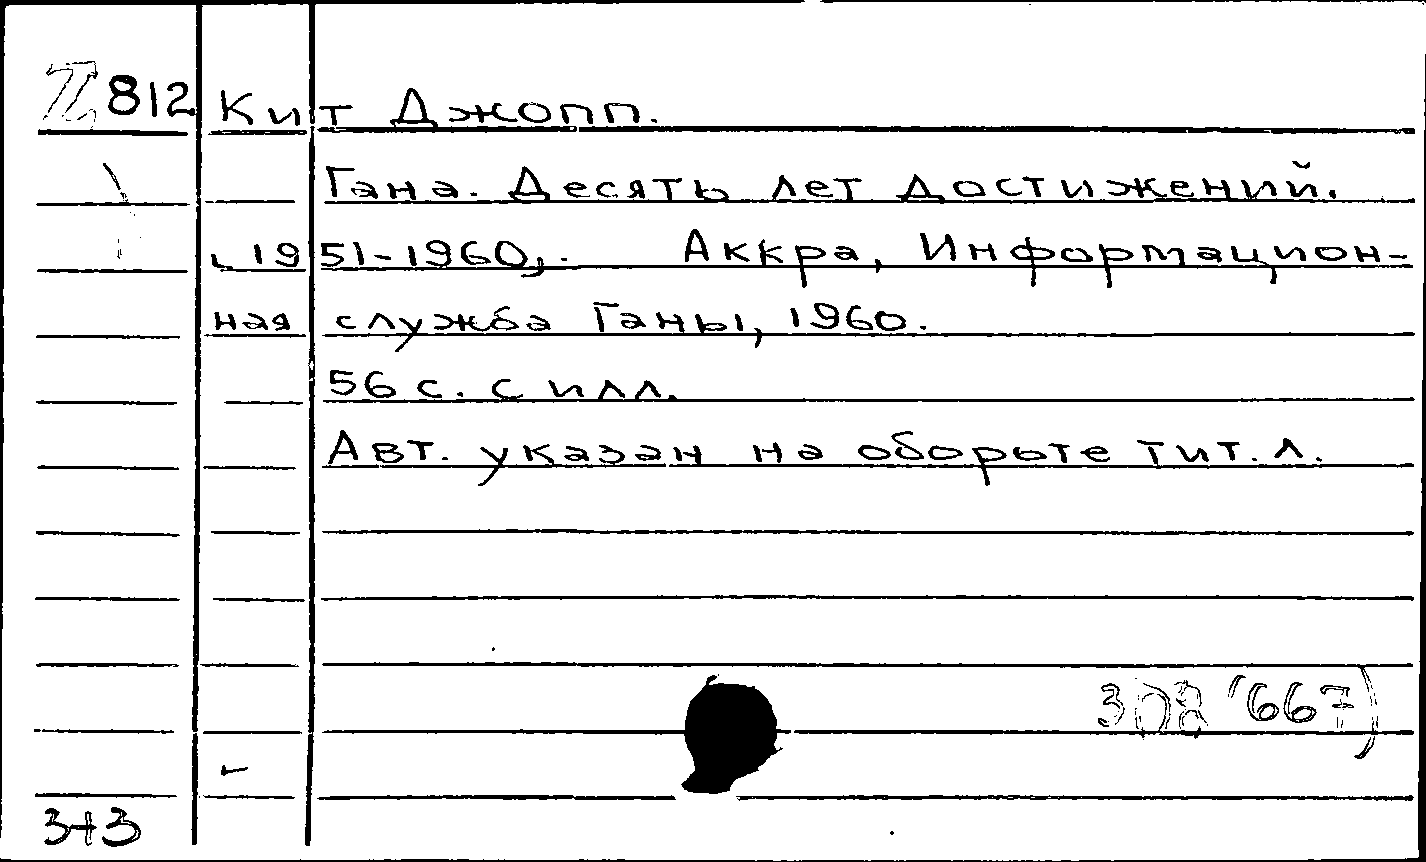 812 Кит Джопп.
Гана. Десять лет достижений.
[1951-1960]. Аккра, Информацион-
ная служба Ганы, 1960.
56 с. с илл.
Авт. указан на обороте тит. л.
308(667)
3+3